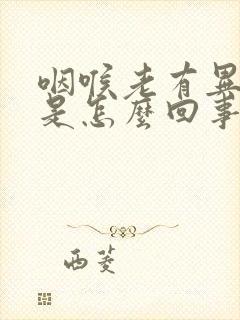 咽喉老有異
是怎麼回事
西菱